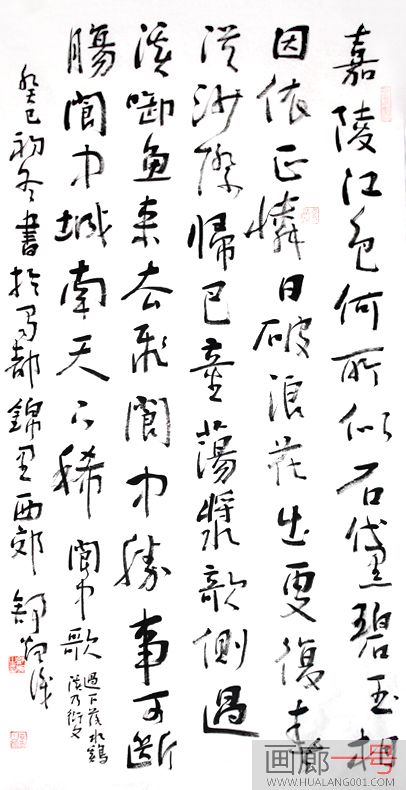 嘉陵江色何所似石黛碧玉相
因依正憐日破浪花出更復春
從沙際歸巴童蕩槳欹側過
溪啣魚來去飛閬中勝事可斷
腸閬中城南天下稀 閬中歌
過下落水鷄
溪乃衍文
癸巳初冬書於蜀都錦里西郊 舒
画廊一号
WWW.HUALANG001.COM